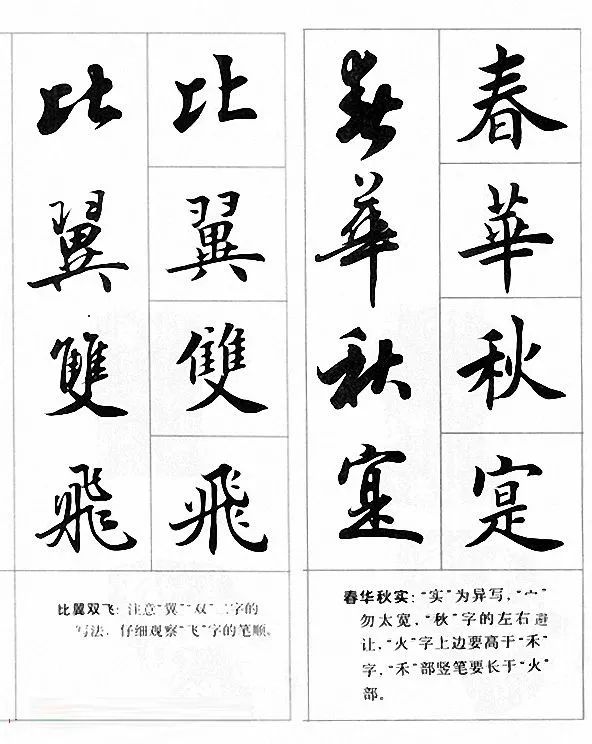 春華秋寔
春華秋寔
春华秋实：“实”为异写，“宀”
勿太宽，“秋”字的左右避
让，“火”字上边要高于“禾”
字，“禾”部竖笔要长于“火”
部。
比翼雙飛
比翼雙飛
比翼双飞：注意“翼”“双”二字的
写法，仔细观察“飞”字的笔顺。